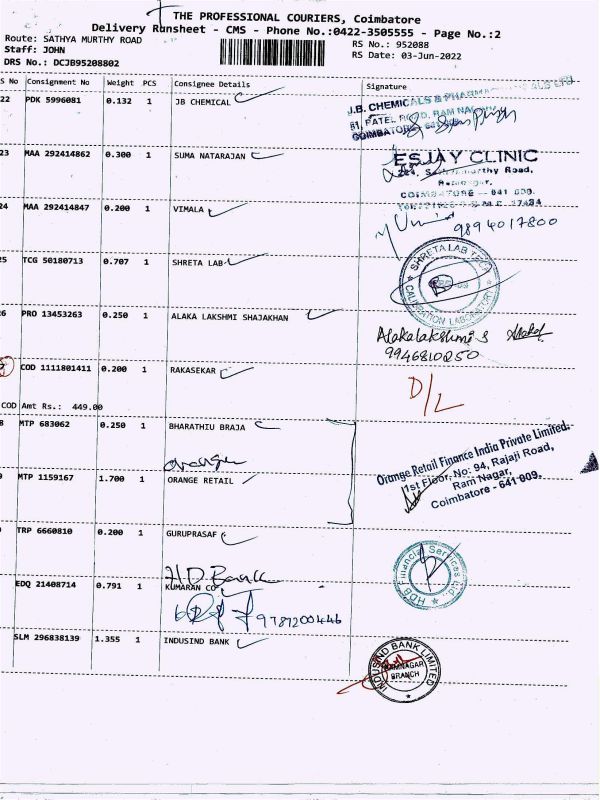 THE PROFESSIONAL COURIERS, Coimbatore
Delivery Runsheet - CMS - Phone No.:0422-3505555 - Page No.:2
Route: SATHYA MURTHY ROAD
RS No.: 952088
Staff: JOHN
RS Date: 03-Jun-2022
DRS No.: DCJB95208802
S No Consignment No Weight PCS Consignee Details Signature
22 PDK 5996081 0.132 1 JB CHEMICAL
J.B. CHEMICALS &
COIMBATORE
23 MAA 292414862 0.300 1 SUMA NATARAJAN
ESJAY CLINIC
Road,
COIMBATORE - 641 009.
24 MAA 292414847 0.200 1 VIMALA
9894017800
25 TCG 50180713 0.707 1 SHRETA LAB
SHRETA LAB TECH
CALIBRATION LABORATORY
26 PRO 13453263 0.250 1 ALAKA LAKSHMI SHAJAKHAN
Alakalakshmi S
9946810250
COD 1111801411 0.200 1 RAKASEKAR
D/L
COD Amt Rs.: 449.00
8 MTP 683062 0.250 1 BHARATHIU BRAJA
orange
MTP 1159167 1.700 1 ORANGE RETAIL
Orange Retail Finance India Private Limited.
1st Floor, No: 94, Rajaji Road,
Ram Nagar,
Coimbatore - 641 009.
TRP 6660810 0.200 1 GURUPRASAF
HDB Financial Services Ltd.
H.D. Bank
EDQ 21408714 0.791 1 KUMARAN CO
SLM 296838139 1.355 1 INDUSIND BANK
INDUSIND BANK LIMITED
RAMNAGAR
BRANCH